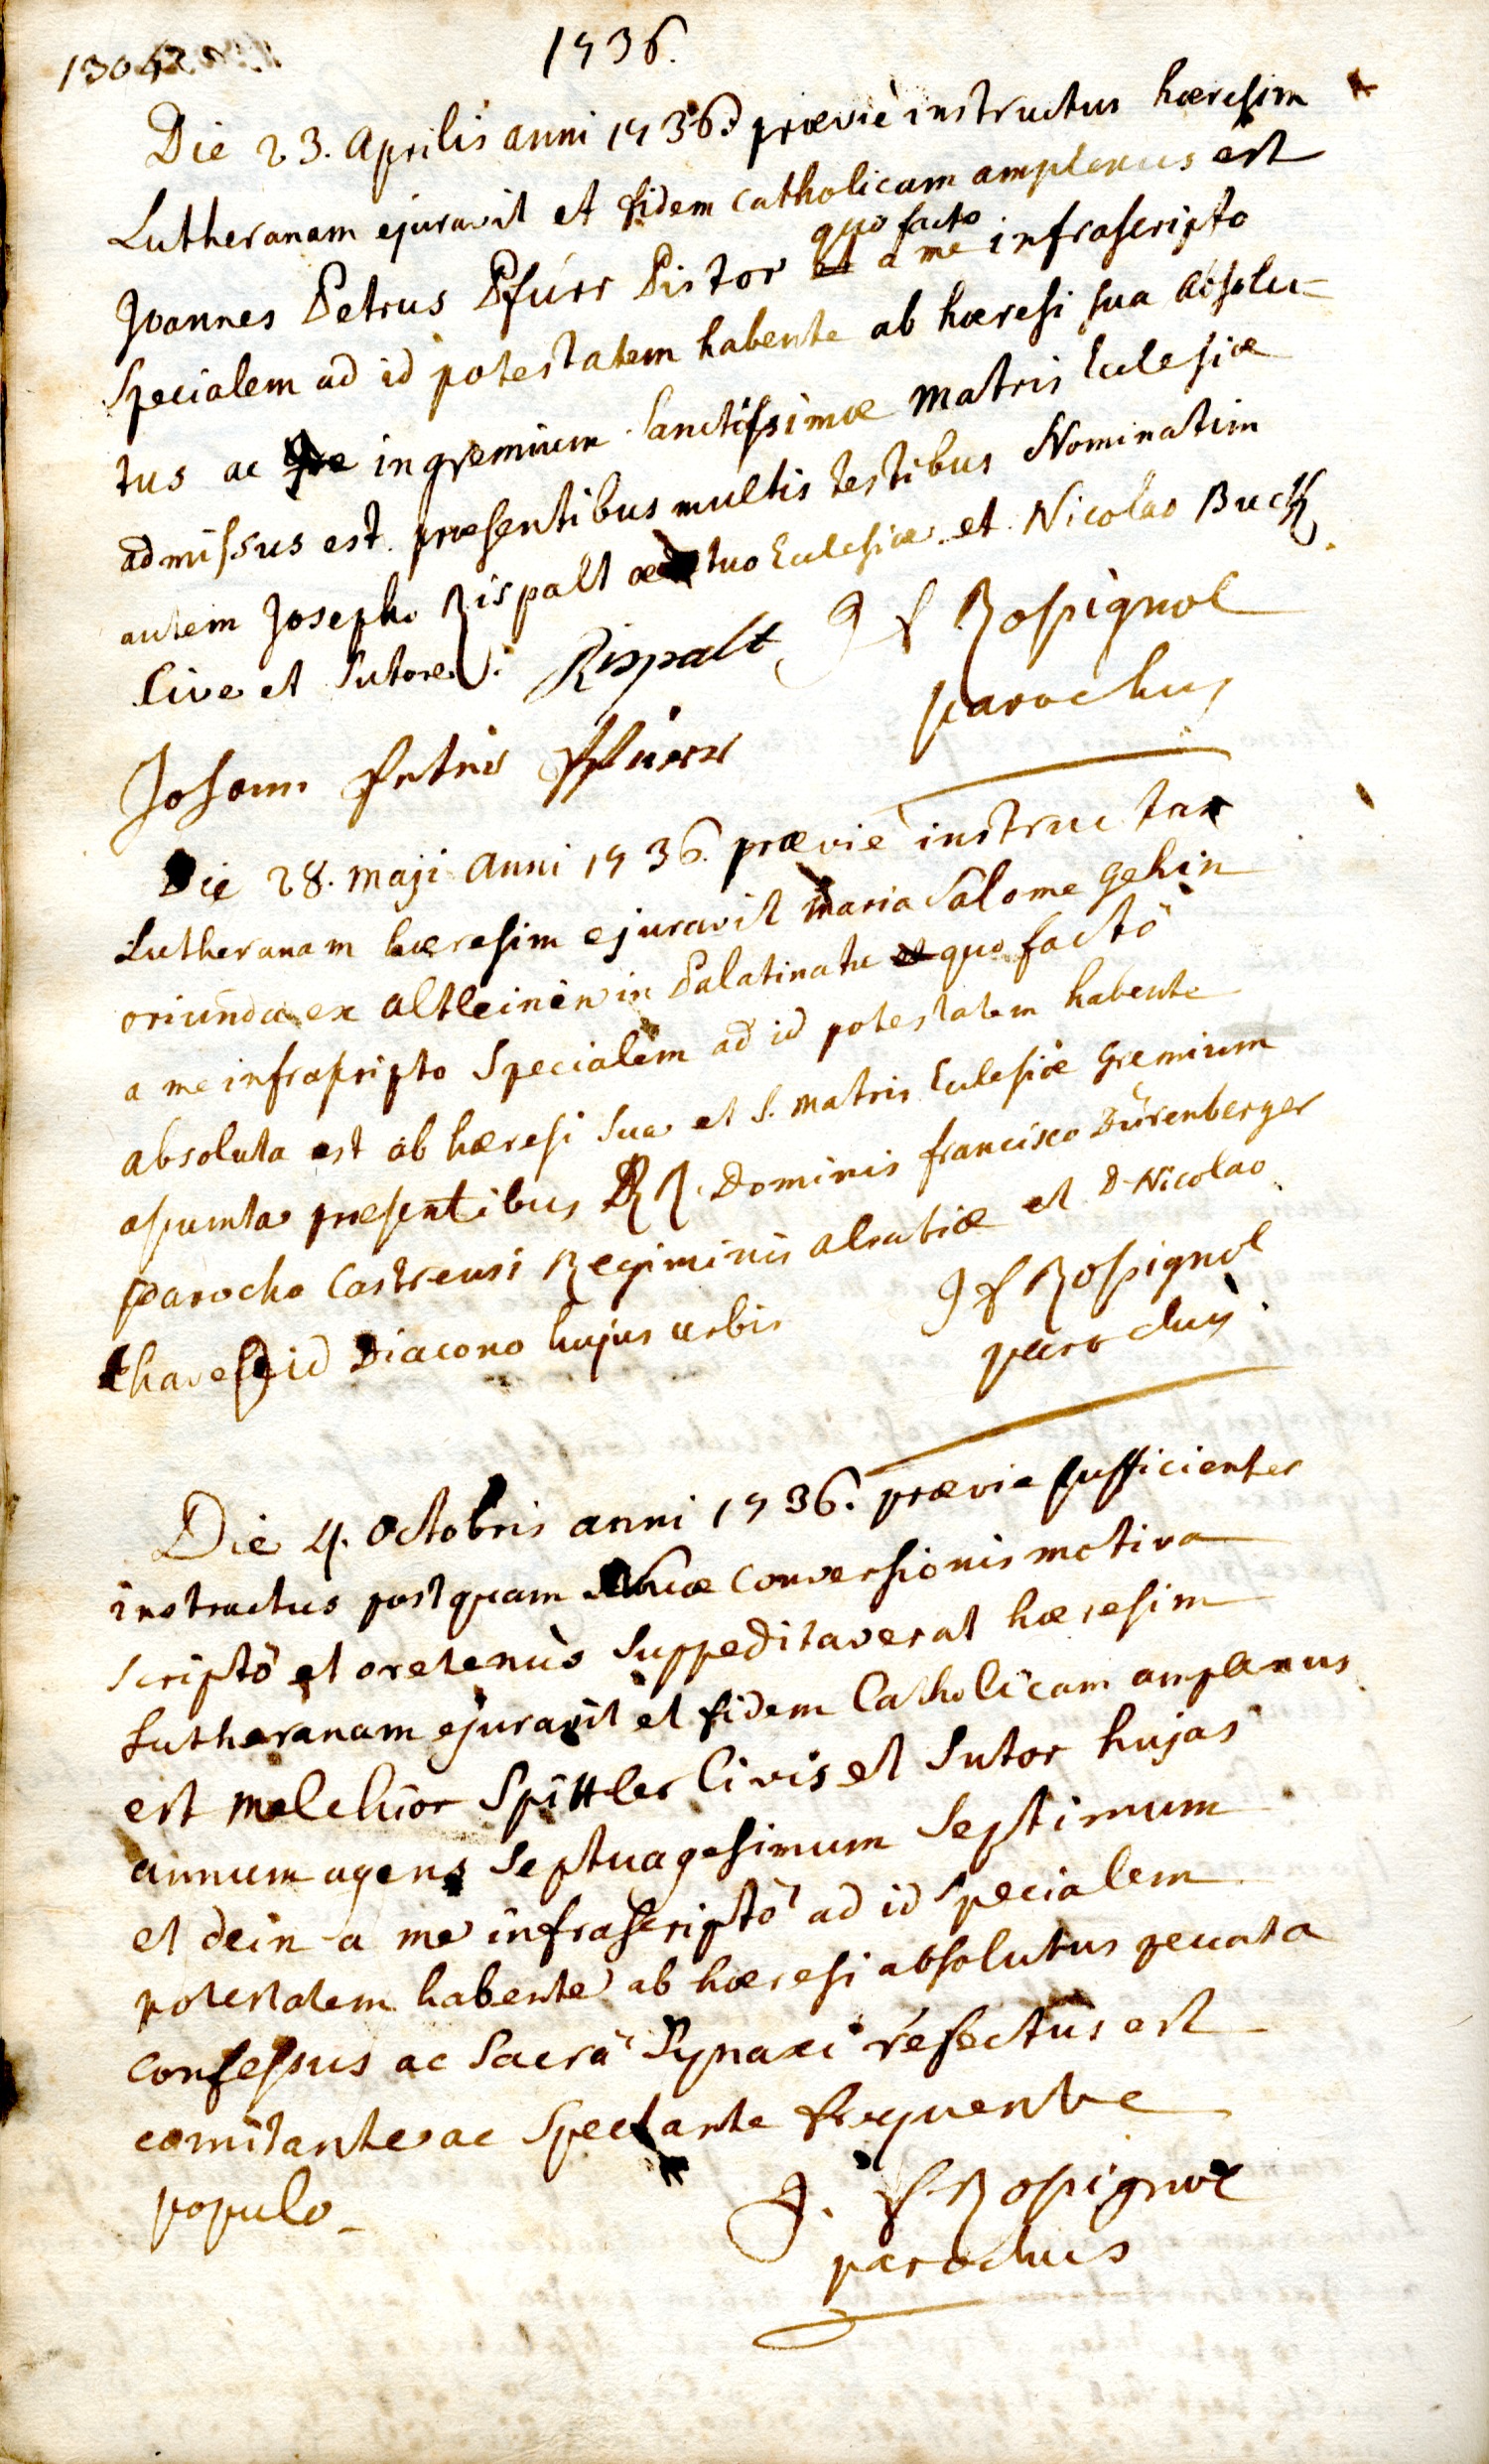 1736.
Die 23. Aprilis anni 1736. prævie instructus hæresim
Lutheranam ejuravit et fidem catholicam amplexus est
quo facto
Joannes Petrus Pfürr Pistor a me infrascripto
Specialem ad id potestatem habente ab hæresi sua absolu-
tus ac in gremium Sanctissimæ Matris Ecclesiæ
admissus est. præsentibus multis testibus Nominatim
autem Josepho Rispalt ædituo Ecclesiæ et Nicolao Buck
Cive et Sutore.
Rispalt
J f Rossignol
parochus
Johann Peter Pfürr
Die 28. Maji Anni 1736. prævie instructa
Lutheranam hæresim ejuravit Maria Salome Gehin
oriunda ex Altleinen in Palatinatu et quo factô
a me infrascripto Specialem ad id potestatem habente
absoluta est ab hæresi sua et S. Matris Ecclesiæ Gremium
assumta præsentibus RR. Dominis francisco Dürenberger
Parocho Castrensi Regiminis Alsatiæ et D. Nicolao
Diacono hujus urbis
J f Rossignol
parochus
Die 4. Octobris anni 1736. prævie sufficienter
instructus postquam suæ conversionis motiva
scriptô et oretenùs Suppeditaverat hæresim
Lutheranam ejuravit et fidem Catholicam amplexus
est Melchior Spittler Civis et Sutor hujas
annum agens Septuagesimum Septimum
et dein a me infrascriptô ad id Specialem
potestatem habente ab hæresi absolutus peccata
confessus ac Sacrâ Synaxi refectus est
comitante ac Spectante frequente
populo
J. f Rossignol
parochus